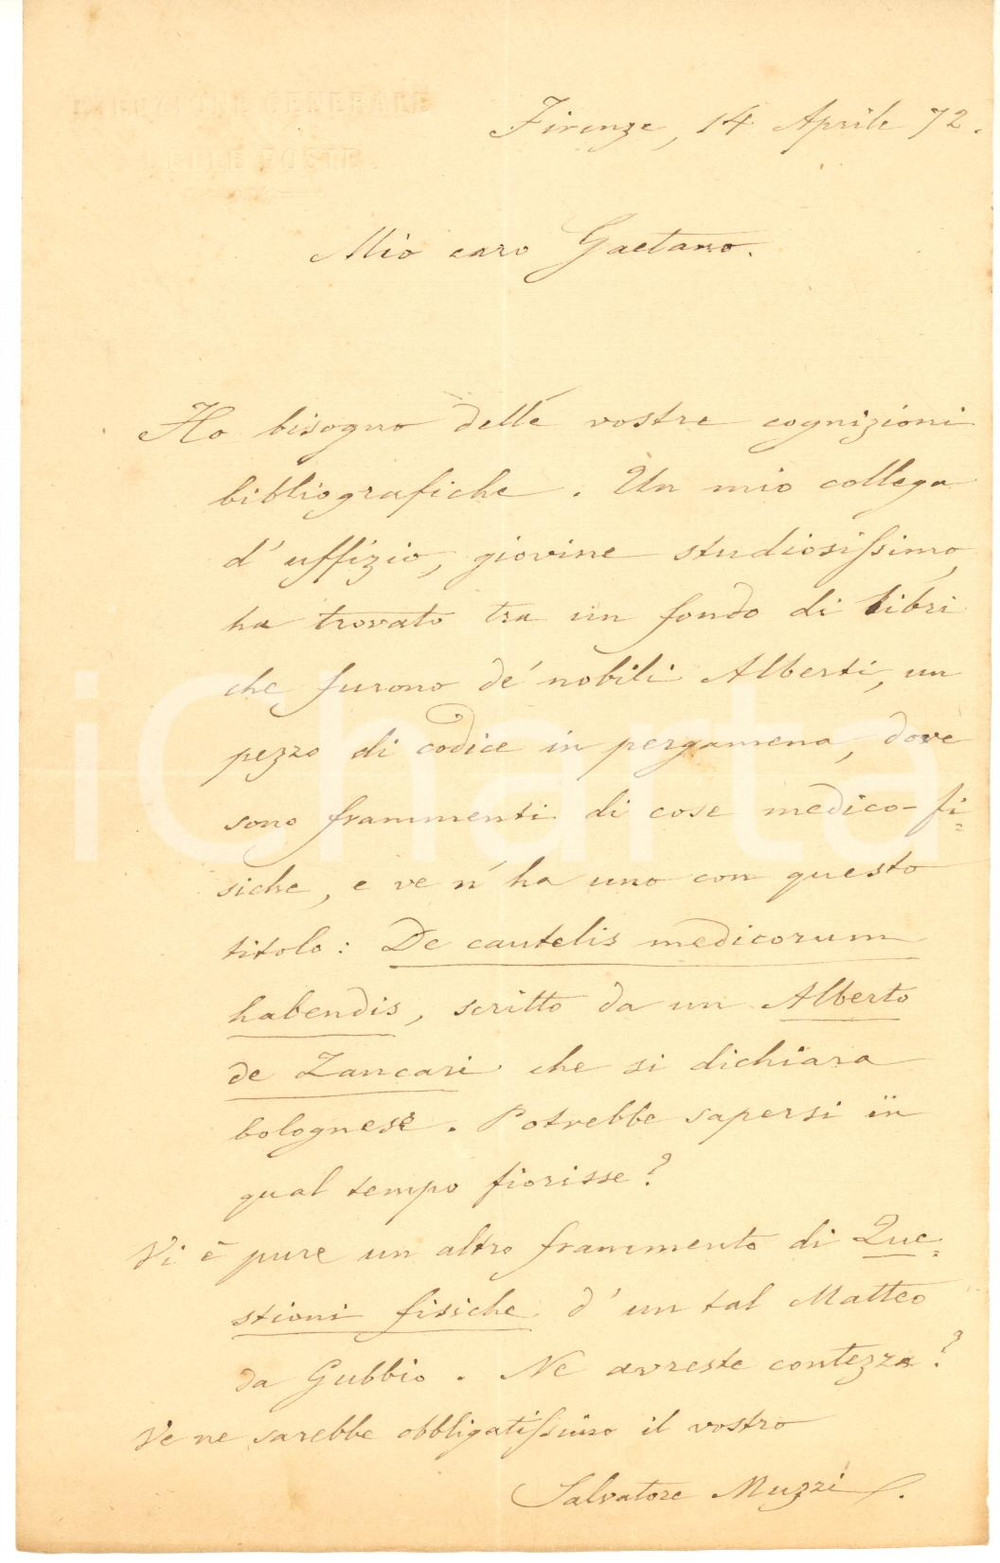 DIREZIONE GENERALE
DELLE POSTE
Firenze, 14 Aprile 72.
Mio caro Gaetano.
Ho bisogno delle vostre cognizioni
bibliografiche. Un mio collega
d'uffizio, giovine studiosissimo,
ha trovato tra un fondo di libri
che furono de' nobili Alberti, un
pezzo di codice in pergamena, dove
sono frammenti di cose medico-fi=
siche, e ve n'ha uno con questo
titolo: De cautelis medicorum
habendis, scritto da un Alberto
de Zancari che si dichiara
bolognese. Potrebbe sapersi in
qual tempo fiorisse?
Vi è pure un altro frammento di Que=
stioni fisiche d'un tal Matteo
da Gubbio. Ne avreste contezza?
Ve ne sarebbe obbligatissimo il vostro
Salvatore Muzzi.
iCharta